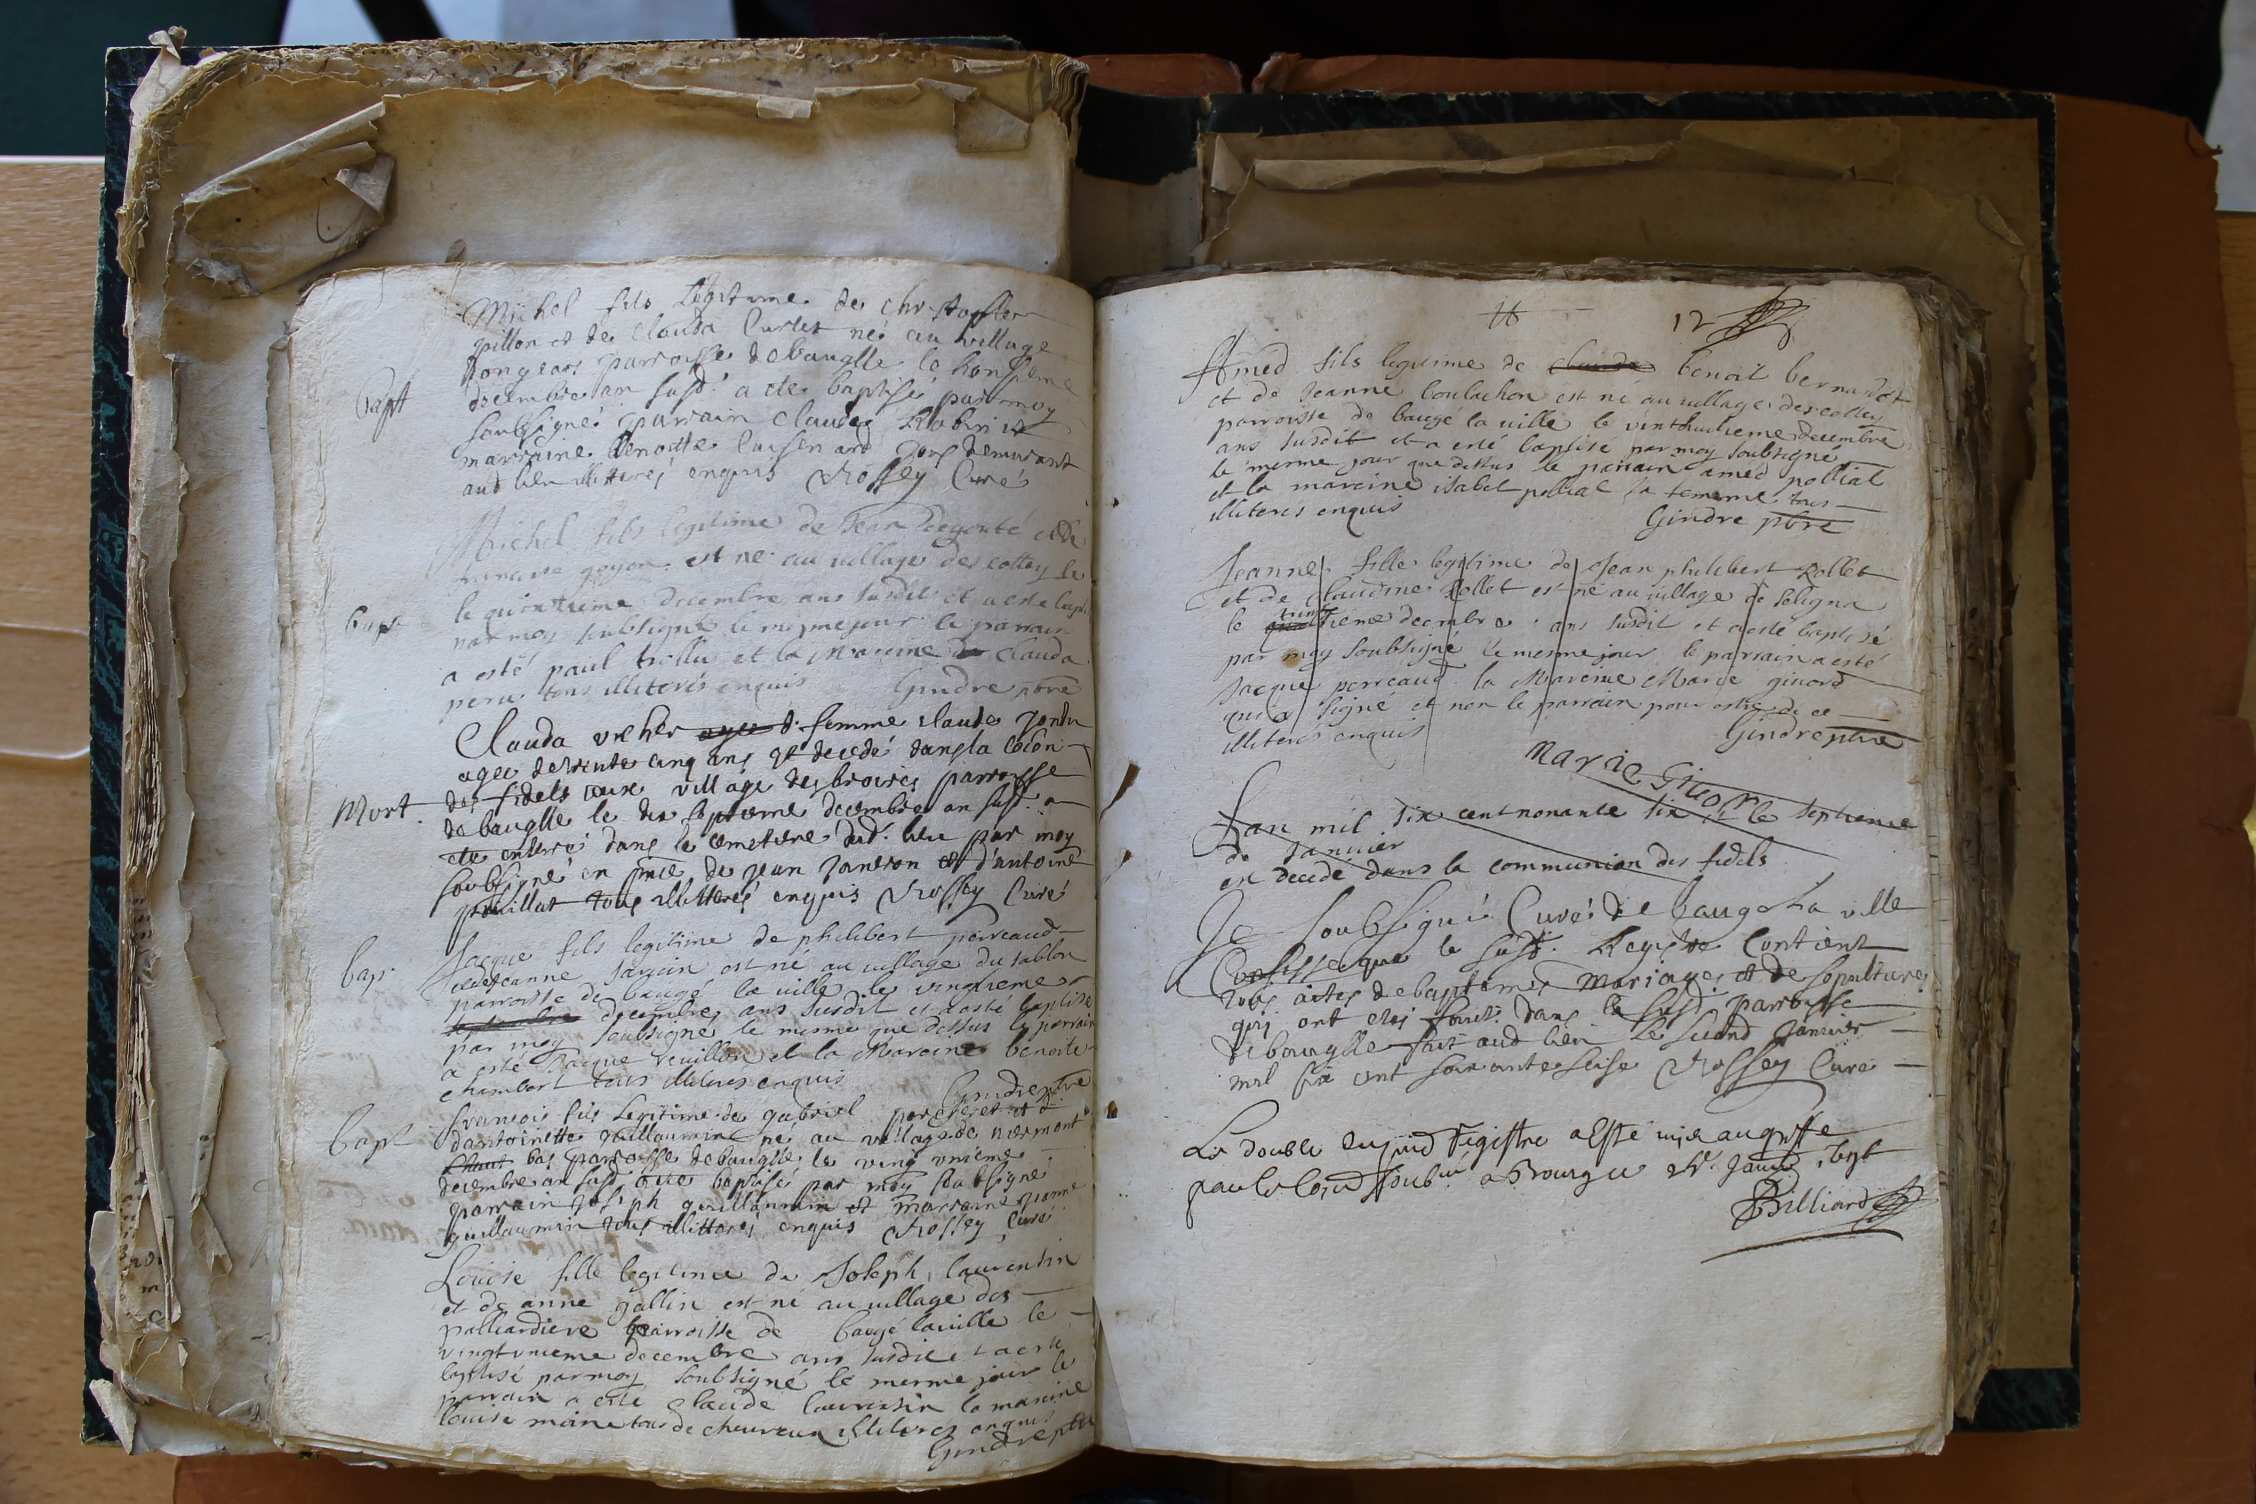 Michel fils Legitime de Christophle
pillon et de Clauda Curlet né au village
parroisse de bauglle le honsieme
Bapt
decembre an susd. a ete baptisé par moy
soubsigné parrain Claude Robin et
marraine benoiste tous demurant
aud lieu illitterés enquis Rossey Curé
Michel fils legitime de Jean et de
goyon est né au village des cottey le
Bapt
le quinzieme decembre ans susdit et a esté bapt.
par moy soubsigné le mesme jour le parrain
a esté paul trollu et la Mareine Clauda
peru tous illiterés enquis Gindre pbre
Clauda vuher agee d. femme claude
agee de trente cinq ans et decedé dans la comon
Mort
des fidels aux village des broires parroisse
de bauglle le dix septieme decembre an susd. a
ete enterré dans le cemetiere dud. lieu par moy
soubsigné en pnce de jean et d'antoine
tous illitterés enquis Rossey Curé
Bap.
Jacque fils legitime de philibert perreaud
Jeanne est né au village du sablon
parroisse de baugé la ville le vingtieme
decembre ans susdit et a esté baptisé
par moy soubsigné le mesme que dessus le parrain
a esté Jacque revillon et la Mareine benoite
chambert tous illiteres enquis
Gindre pbre
Bapt
francois fils Legitime de gabriel et d
dantoinette guillaumin né au village de niermont
bas parroisse de bauglle le vingt unieme
decembre an susd. baptisé par moy soubsigné
parrain joseph guillaumin et marraine jeanne
guillaumin tous illitterés enquis Rossey Curé
Louise fille legitime de Joseph laurensin
et de anne gallin est né au village des
palliardiere parroisse de baugé la ville le
vingt unieme decembre ans susdit et a esté
baptisé par moy soubsigné le mesme jour le
parrain a esté Claude laurensin la mareine
louise moine tous de cheureux illiteres enquis
Gindre pbre
12
Amed fils legitime de Claude benoit bernardot
et de Jeanne boulachon est né au village des cottey
parroisse de baugé la ville le vinthuitieme decembre
ans susdit et a esté baptisé par moy soubsigné
le mesme jour que dessus le parrain amed pollial
et la mareine isabel pollial sa femme tous
illiteres enquis
Gindre pbre
Jeanne fille legitime de Jean philibert Rollet
et de Claudine Rollet est né au village de Seligna
le trentieme decembre ans susdit et a esté baptisé
par moy soubsigné le mesme jour le parrain a esté
Jacque perreaud la Mareine Marie
qui a signé et non le parrain pour estre de ce
illiteres enquis
Gindre pbre
Marie
Lan mil six cent nonante six et le septieme
de Janvier
en decedé dans la communion des fidels
Je soubsigné Curé de bauge La ville
Certiffie que le susd. Registre Contient
tous actes de baptemes Mariages et de sepultures
qui ont etes faict dans la susd parroisse
de bauglle fait aud lieu le second Janvier
mil six cent soixante seise Rossey Curé
Le double du pnt registre a Esté mis au greffe
par le Coser soubné a Bourg ce Janv.
Billiard